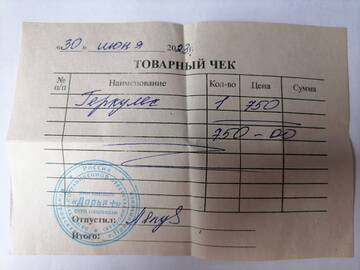 «30» июня 2023г.
ТОВАРНЫЙ ЧЕК
№ п/п Наименование Кол-во Цена Сумма
Геркулес 1 750
750-00
Россия
«Дарья+»
Отпустил:
Итого: